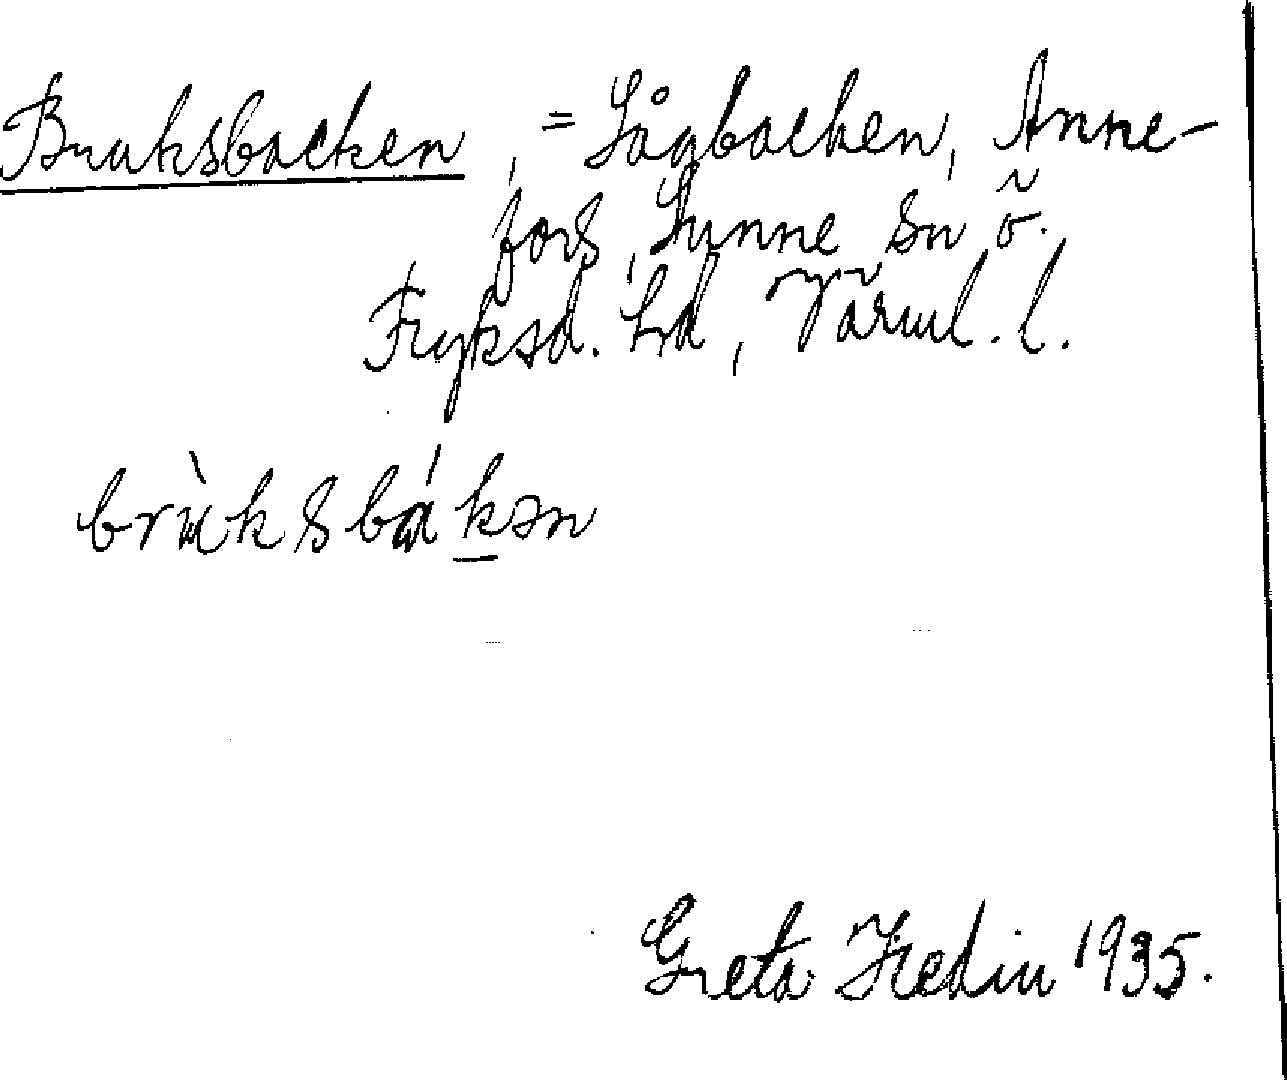 Bruksbacken, = Sågbacken, Anne-
fors, Sunne sn ö.
Fryksd. hd, Värml. l.
brùksbákən
Greta Hedin 1935.